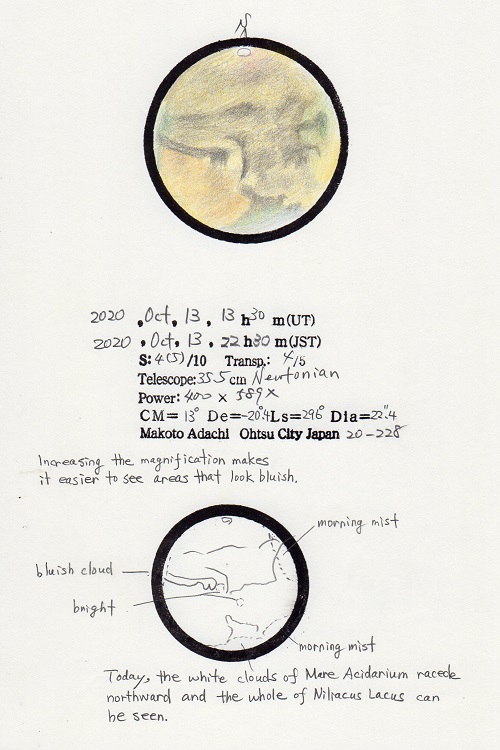 2020, Oct, 13, 13 h30 m(UT)
2020, Oct, 13, 22 h30 m(JST)
S: 4(5)/10 Transp.: 4/5
Telescope: 35.5 cm Newtonian
Power: 400 × 589×
CM= 13° De=-20°.4 Ls=296° Dia=22".4
Makoto Adachi Ohtsu City Japan 20-228
Increasing the magnification makes
it easier to see areas that look bluish.
morning mist
bluish cloud
bright
morning mist
Today, the white clouds of Mare Acidarium recede
northward and the whole of Niliacus Lacus can
be seen.